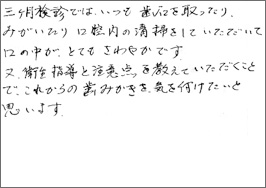 三ヶ月検診では、いつも歯石を取ったり、
みがいたり口腔内の清掃をしていただいて
口の中が、とてもさわやかです。
又、衛生指導と注意点を教えていただくこと
で、これからの歯みがきを、気を付けたいと
思います。